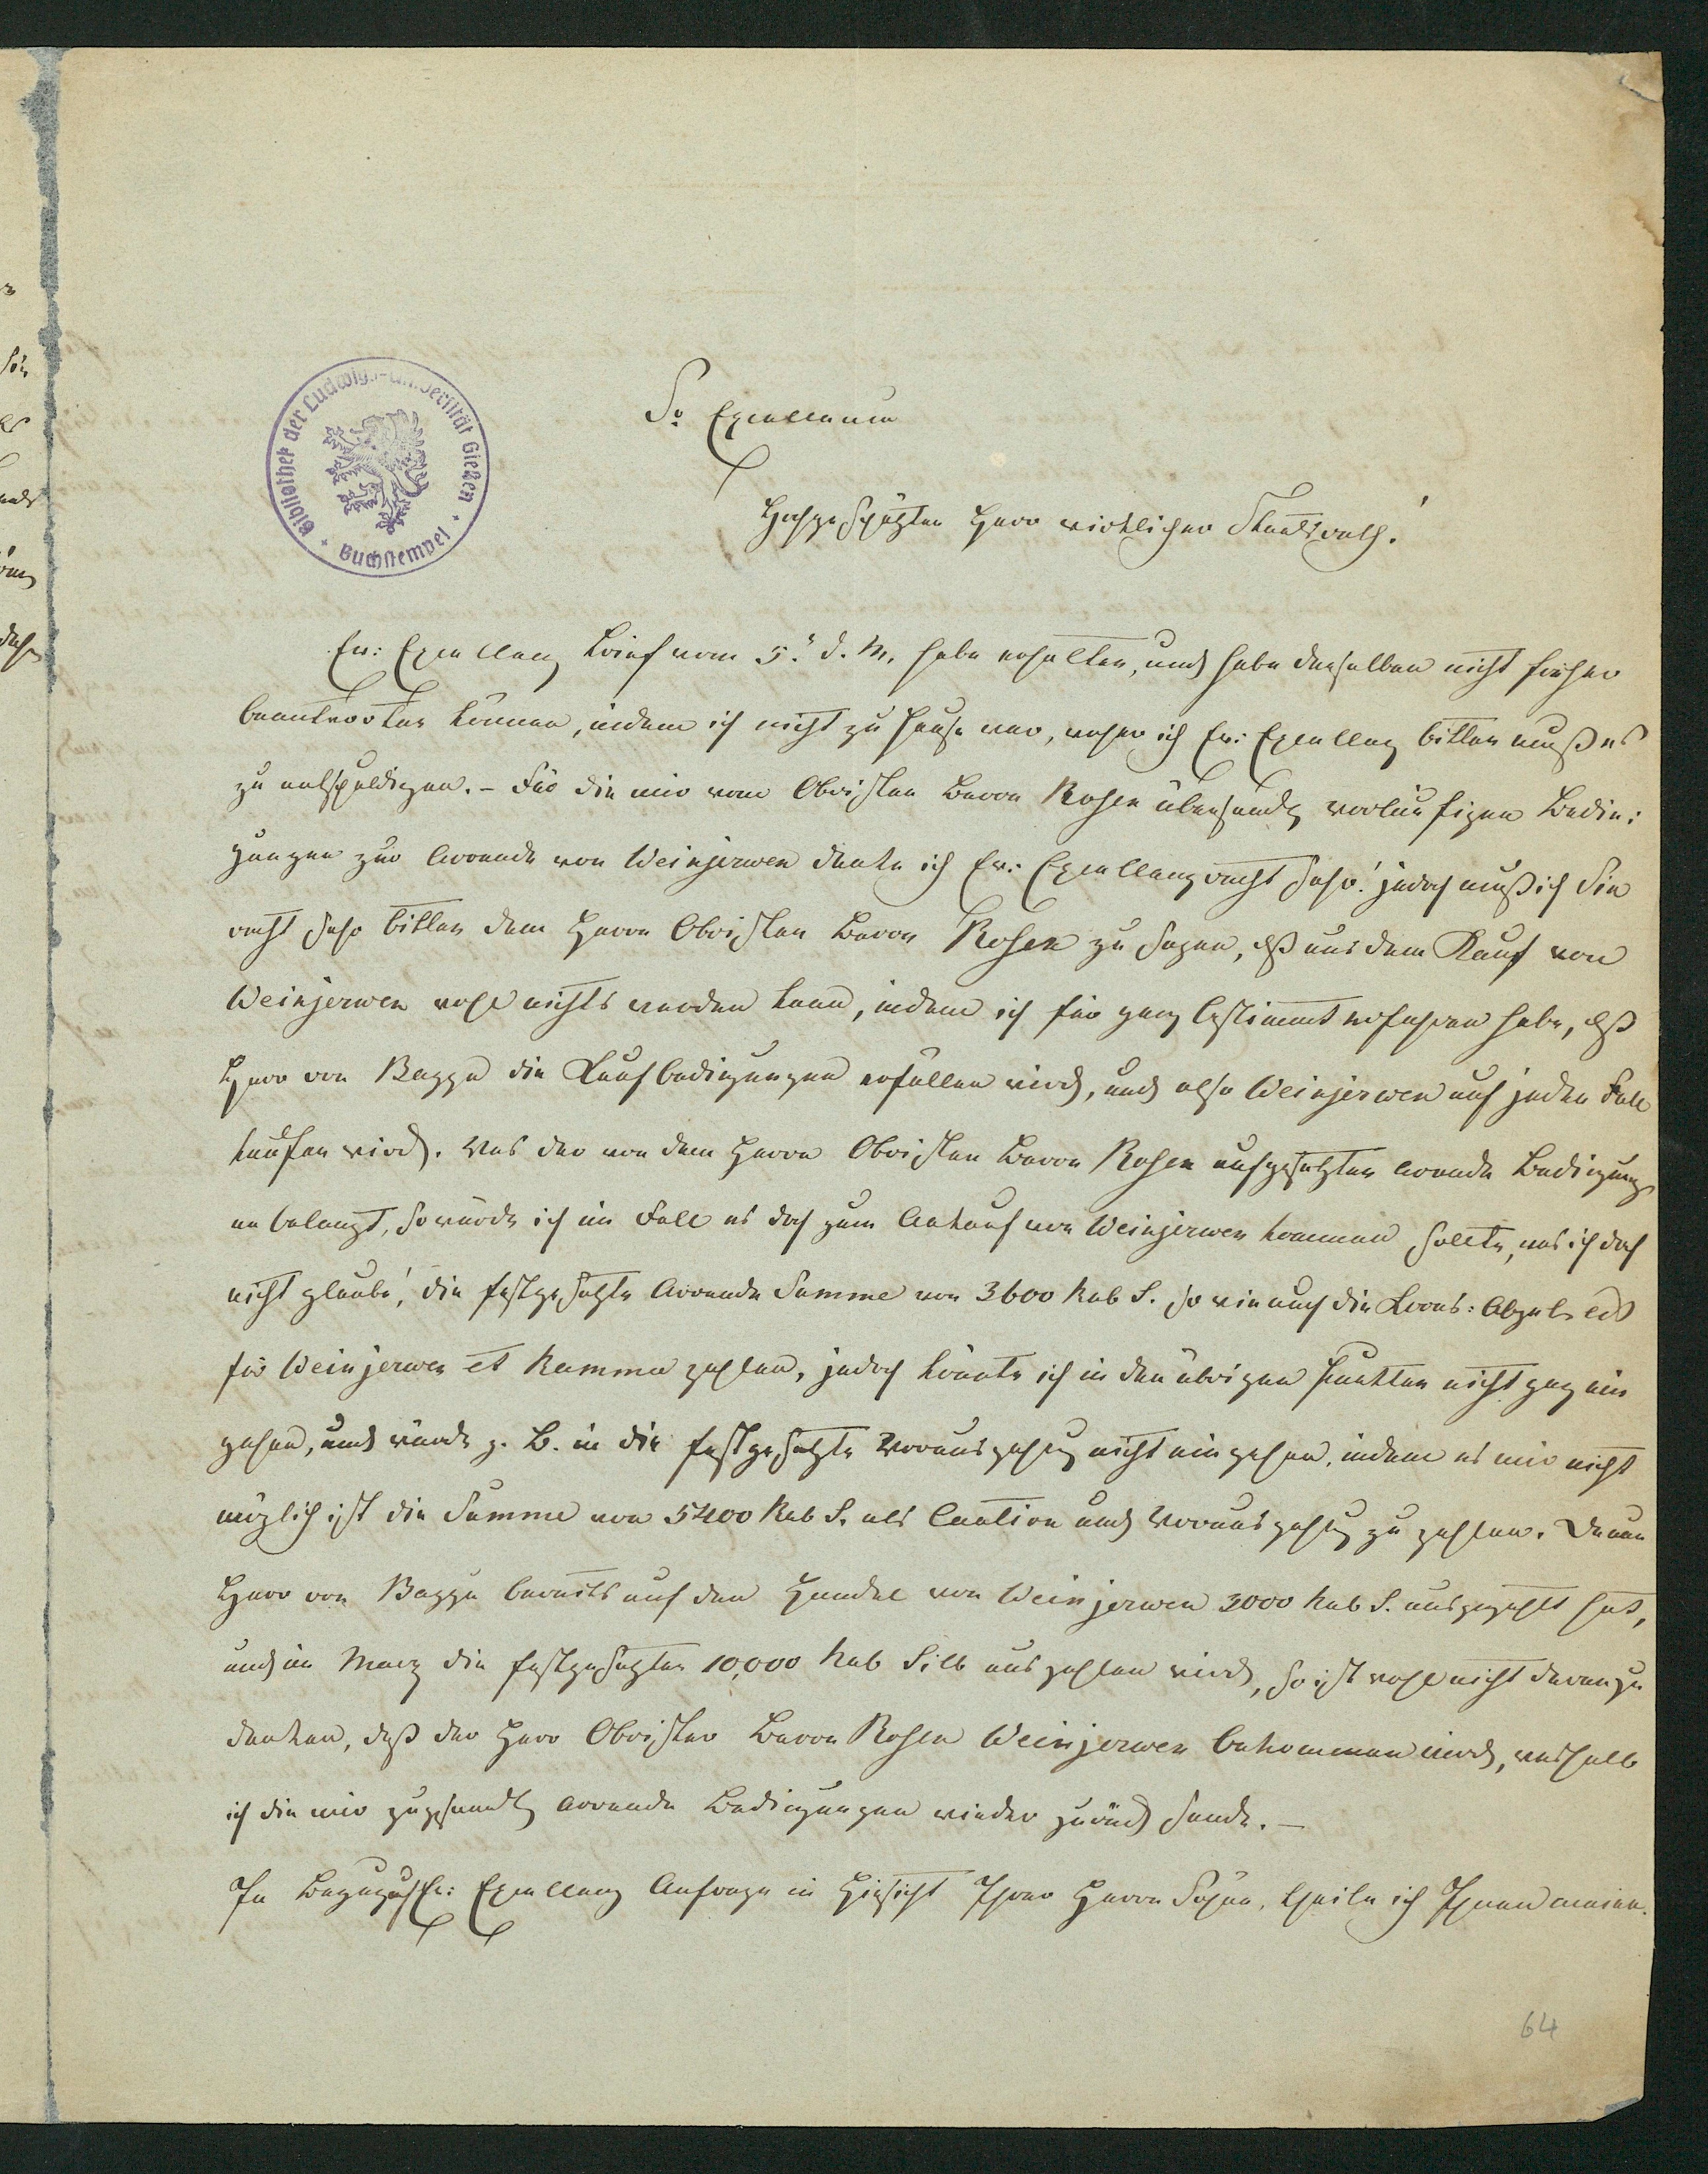 Bibliothek der Ludwigs-Universität Gießen
Buchstempel
Sr Excellence
Hochgeschätzter Herr wirklicher Staatsrath!
Ew: Excellenz Brief vom 5.ⁿ d. M. habe erhalten, und habe denselben nicht früher
beantworten können, indem ich nicht zu Hause war, woher ich Ew: Excellenz bitten muß es
zu entschuldigen. – Für die mir vom Obristen Baron Rosen übersandten vorläufigen Bedin:
gungen zur Arrende von Weinjerwen danke ich Ew: Excellenz recht sehr! jedoch muß ich Sie
recht sehr bitten dem Herrn Obristen Baron Rosen zu sagen, dß aus dem Kauf von
Weinjerwen wohl nichts werden kann, indem ich für ganz bestimmt erfahren habe, dß
Herr von Bagge die Kaufbedingungen erfüllen wird, und also Weinjerwen auf jeden Fall
kaufen wird. Was der von dem Herrn Obristen Baron Rosen aufgesetzten Arrende Bedingung
an belangt, so würde ich im Fall es doch zum Ankauf von Weinjerwen kommen sollte, was ich doch
nicht glaube!, die festgesetzte Arrende Summe von 3600 Rub S. so wie auch die Krons: Abgaben
für Weinjerwen et Kamma zahlen, jedoch könnte ich in den übrigen Punkten nicht ganz ein
gehen, und würde z. B. in die festgesetzte Vorauszahlung nicht eingehen, indem es mir nicht
möglich ist die Summe von 5400 Rub S. als Caution und Vorauszahlung zu zahlen. Da nun
Herr von Bagge bereits auf den Handel von Weinjerwen 3000 Rub S. ausgezahlt hat,
und im Merz die festgesetzten 10,000 Rub Silb auszahlen wird, so ist wohl nicht daran zu
denken, daß der Herr Obrister Baron Rosen Weinjerwen bekommen wird, weshalb
ich die mir zugesandten Arrende Bedingungen wieder zurück sende. –
In Bezug auf Ew: Excellenz Anfrage in Hinsicht Ihres Herrn Sohns, theile ich Ihnen meine
64